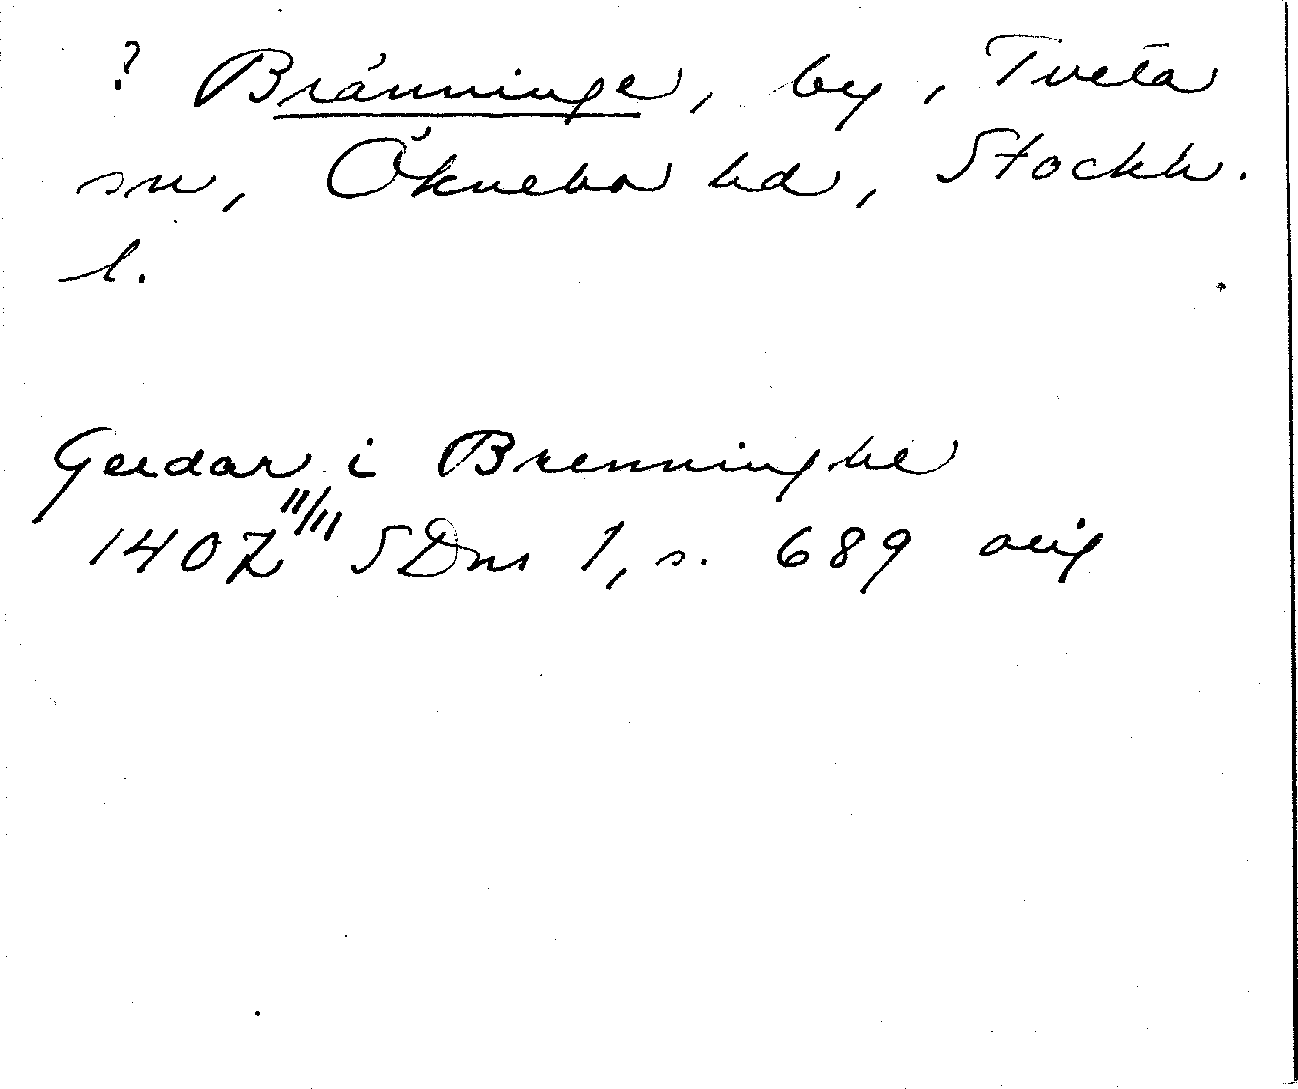 ? Bränninge, by, Tveta
sn, Öknebo hd, Stockh.
l.
Gerdar i Brenninghe
1407 11/11 SDns 1, s. 689 orig